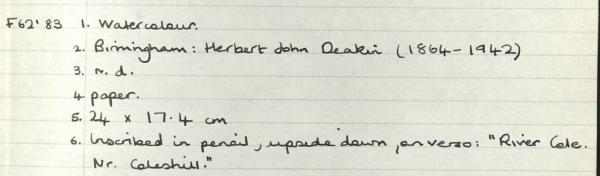 F62'83 1. Watercolour.
2. Birmingham: Herbert John Deakin (1864-1942)
3. n.d.
4. paper.
5. 24 x 17.4 cm
6. Inscribed in pencil, upside down, on verso: "River Cole.
Nr. Coleshill."